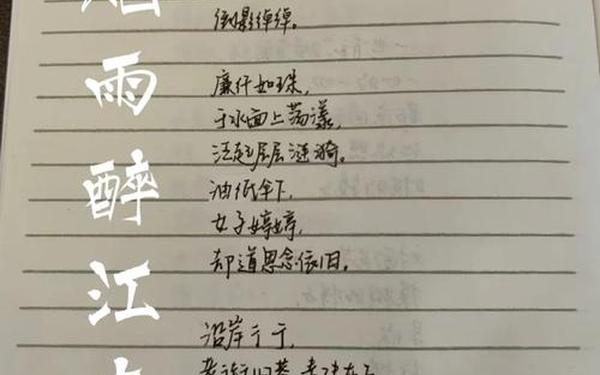 雨
醉
江
倒影绰绰。
廉纤如珠，
于水面上荡漾，
泛起层层涟漪。
油纸伞下，
女子婷婷，
却道思念依旧。
沿岸亍亍，